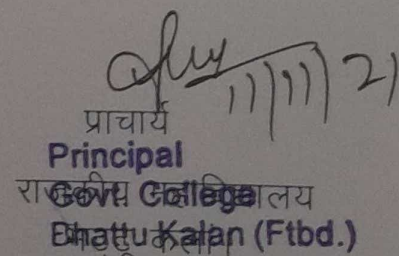 11/11/21
प्राचार्य
Principal
राजकीय महाविद्यालय
Govt. College
Bhattu Kalan (Ftbd.)